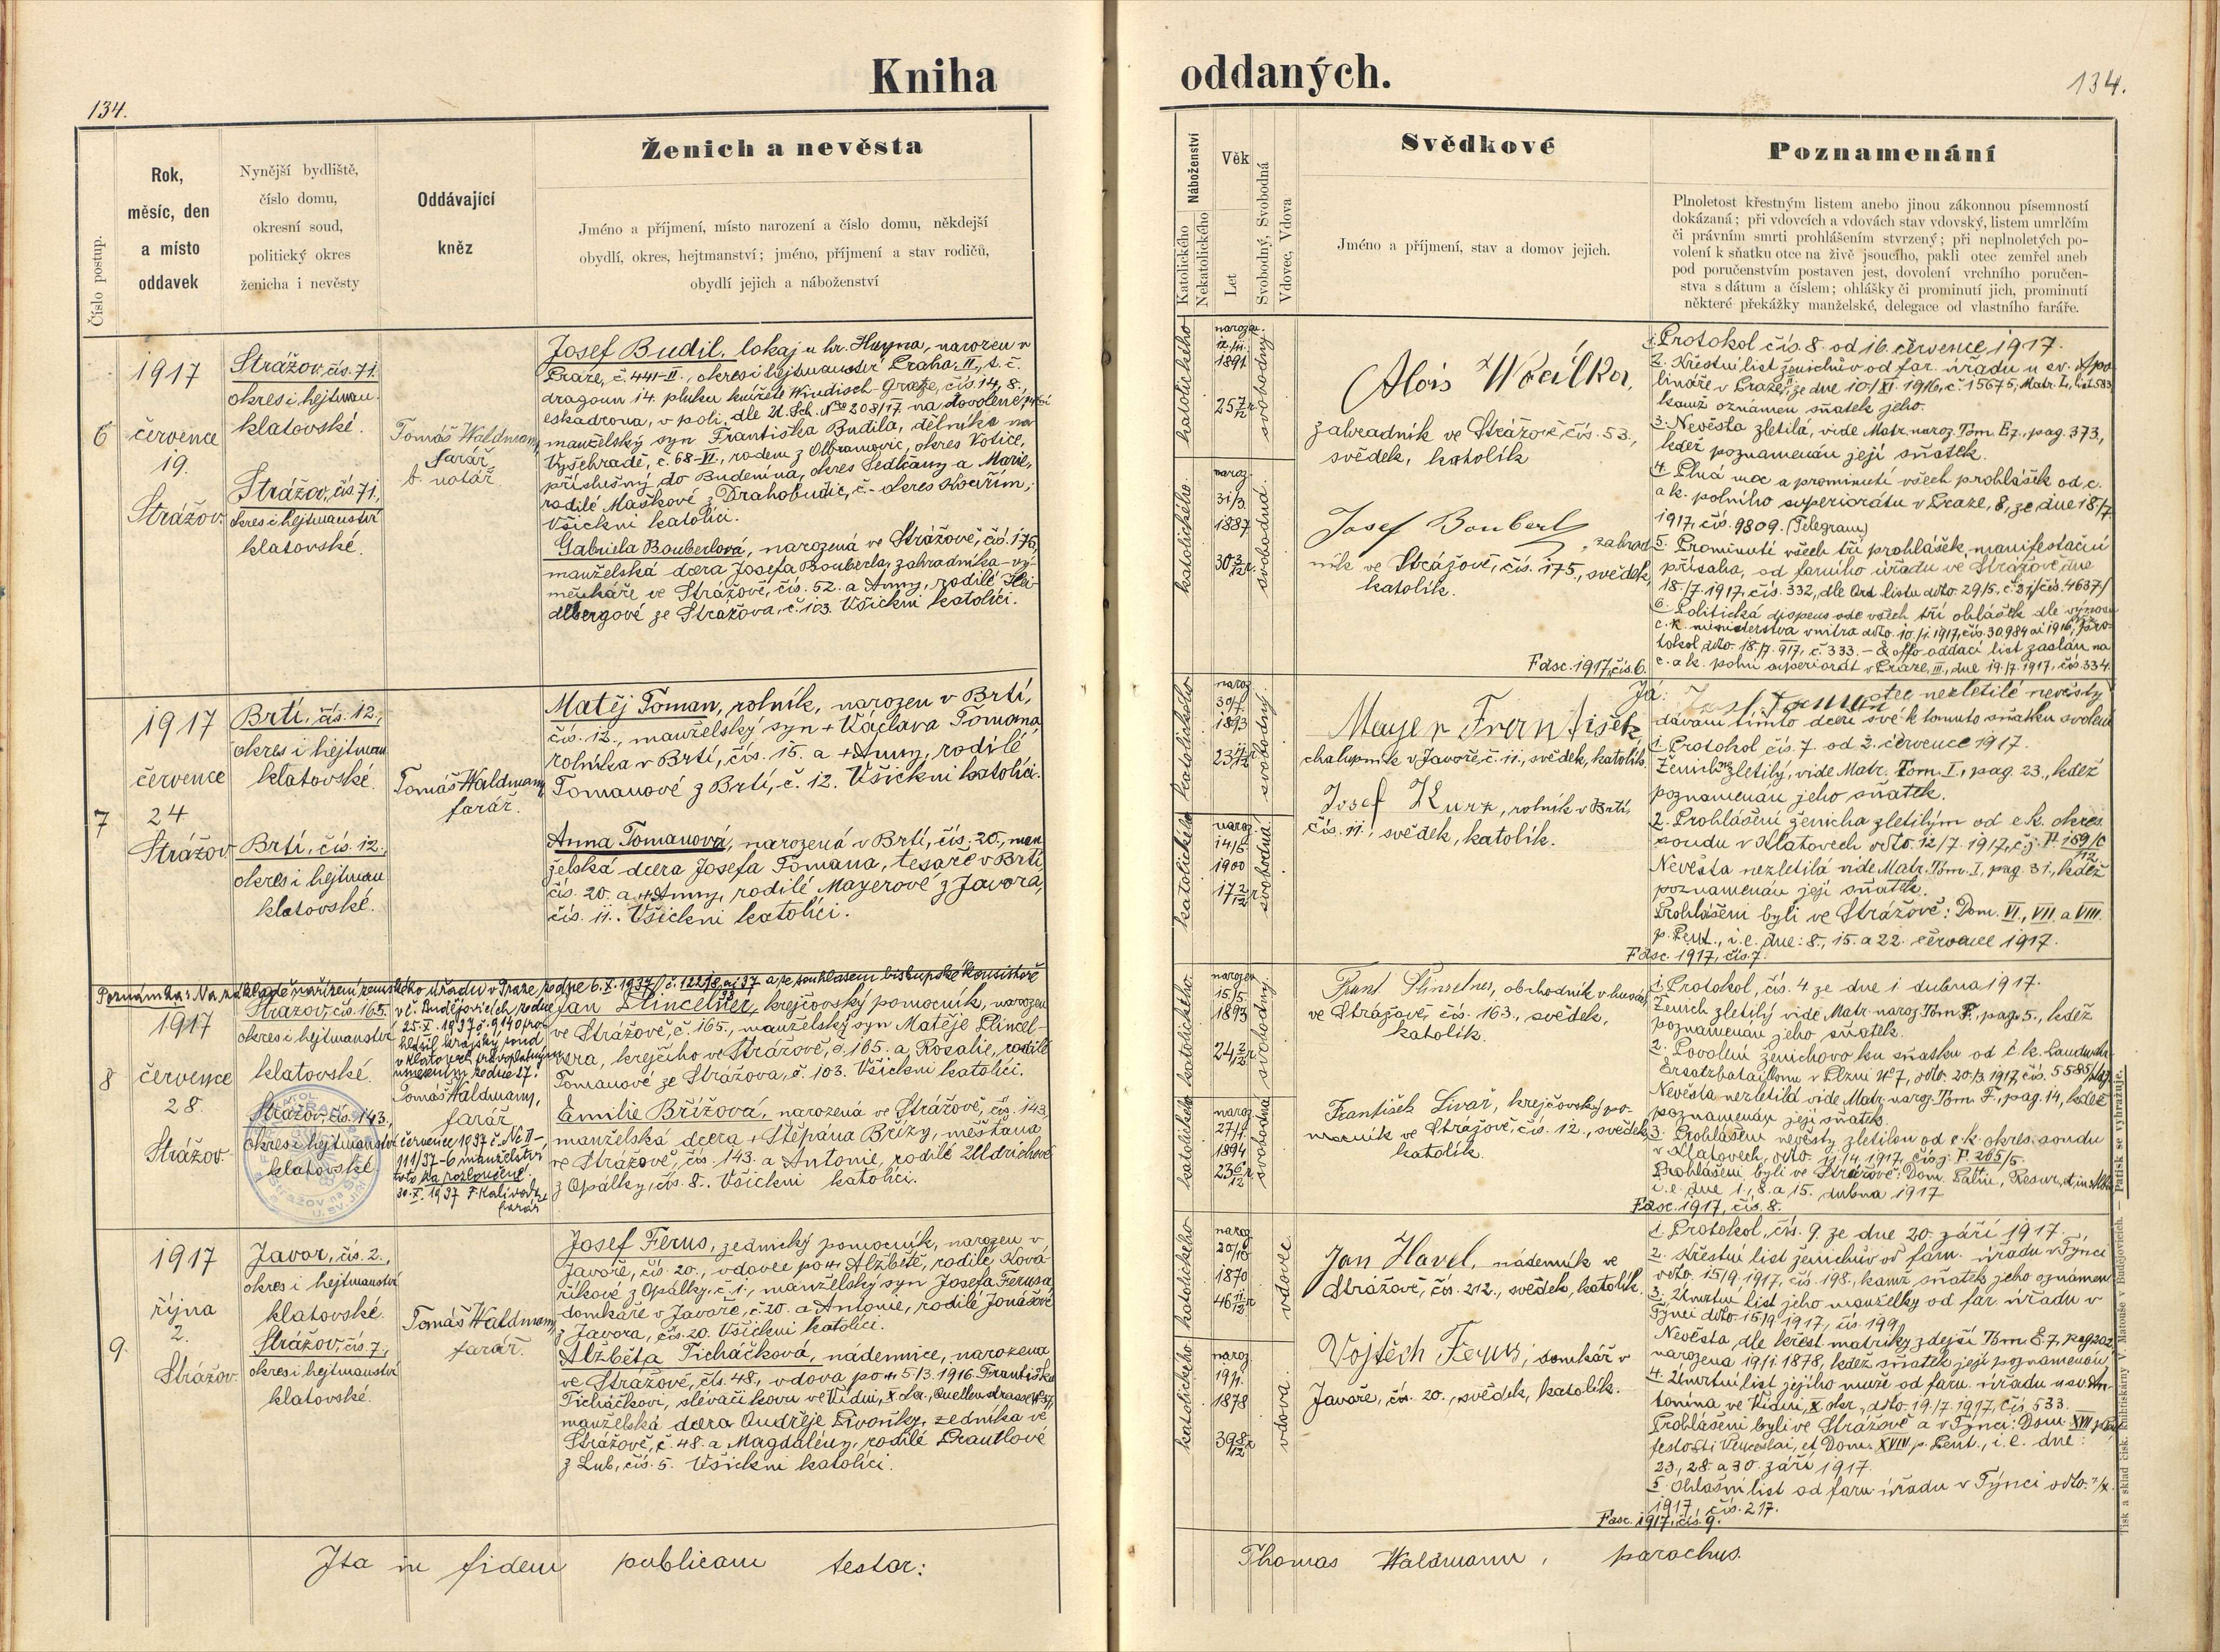 Kniha
oddaných.
134.
134.
Číslo postup.
Rok,
měsíc, den
a místo
oddavek
Nynější bydliště,
číslo domu,
okresní soud,
politický okres
ženicha i nevěsty
Oddávající
kněz
Ženich a nevěsta
Jméno a příjmení, místo narození a číslo domu, někdejší
obydlí, okres, hejtmanství; jméno, příjmení a stav rodičů,
obydlí jejich a náboženství
Náboženství
Katolického
Nekatolického
Věk
Let
Svobodný, Svobodná
Vdovec, Vdova
Svědkové
Jméno a příjmení, stav a domov jejich.
Poznamenání
Plnoletost křestným listem anebo jinou zákonnou písemností
dokázaná; při vdovcích a vdovách stav vdovský, listem umrlčím
či právním smrti prohlášením stvrzený; při neplnoletých po-
volení k sňatku otce na živě jsoucího, pakli otec zemřel aneb
pod poručenstvím postaven jest, dovolení vrchního poručen-
stva s dátum a číslem; ohlášky či prominutí jich, prominutí
některé překážky manželské, delegace od vlastního faráře.
6
1917
července
19.
Strážov.
Strážov, čís. 71.
okres i hejtman.
klatovské.
Strážov, čís. 71,
okres i hejtmanství
klatovské.
Tomáš Waldmann,
farář,
b. notář.
Josef Budil, lokaj u hr. , narozen v
Praze, č. 441-II., okres i hejtmanství Praha, II., t. č.
dragoun 14. pluku knížete Windisch-Graetze, čís. 14, 8.,
eskadrona, v poli, dle U. Sch. No 208/17. na dovolené,
manželský syn Františka Budila, dělníka na
Vyšehradě, č. 68-VI., rodem z Olbramovic, okres Votice,
příslušný do Budenína, okres Sedlčany a Marie,
rodilé Maškové z Drahobudic, č.- okres Kouřim,
Všickni katolíci.
Gabriela Bouberlová, narozená ve Strážově, čís. 176,
manželská dcera Josefa Bouberla, zahradníka-vý-
měnkáře ve Strážově, čís. 52. a Anny, rodilé Hei-
dlbergové ze Strážova, č. 103. Všickni katolíci.
katolického
narozen.
12./III.
1891
25 7/12 r
svobodný
katolického.
naroz.
31/3.
1887.
30 3/12 r.
svobodná.
Alois Wöcílka,
zahradník ve Strážově, čís. 53.,
svědek, katolík
Josef Bouberl, zahrad
ník ve Strážově, čís. 175., svědek,
katolík.
Fasc. 1917, čís. 6.
1. Protokol čís. 8. od 16. července, 1917.
2. Křestní list ženichův od far. úřadu u sv. Apo-
lináře v Praze, ze dne 10./XI. 1916, č. 15675, Matr. L, list 583
kamž oznámen sňatek jeho.
3. Nevěsta zletilá, vide Matr. naroz. Tom. E7., pag. 373.,
kdež poznamenán její sňatek.
4. Plná moc a prominutí všech prohlášek od c.
a k. polního superiorátu v Praze, 8, ze dne 18/7.
1917, čís. 9809. (Telegram)
5. Prominutí všech tří prohlášek, manifestační
přísaha, od farního úřadu ve Strážově, dne
18./7. 1917, čís. 332, dle Ord. listu ddto. 29/5., č. 21/čís. 4637/
6. Politická dispens ode všech tří ohlášek dle výnosu
c. k. ministerstva vnitra ddto. 10./1. 1917, čís. 30.984 ai 1916, Pro-
tokol ddto. 18./7. 917, č. 333. – Ex offo oddací list zaslán na
c. a k. polní superiorát v Praze, III., dne 19./7. 1917, čís. 334.
7
1917
července
24
Strážov
Brtí, čís. 12.,
okres i hejtman
klatovské.
Brtí, čís. 12.,
okres i hejtman
klatovské.
Tomáš Waldmann,
farář.
Matěj Toman, rolník, narozen v Brtí,
čís. 12., manželský syn + Václava Tomana,
rolníka v Brtí, čís. 15. a + Anny, rodilé
Tomanové z Brtí, č. 12. Všickni katolíci.
Anna Tomanová, narozená v Brtí, čís. 20., man
želská dcera Josefa Tomana, tesaře v Brtí,
čís. 20. a + Anny, rodilé Mayerové z Javora,
čís. 11. Všickni katolíci.
katolického
naroz.
30/7.
1893
23 11/12 r.
svobodný
katolického
naroz.
14/5
1900
17 2/12 r
svobodná.
Mayer František,
chalupník v Javoře, č. 11., svědek, katolík.
Josef Kurz, rolník v Brtí,
čís. 11., svědek, katolík.
Já: Josef Toman otec nezletilé nevěsty
dávám tímto dceři své k tomuto sňatku svolení
1. Protokol čís. 7. od 2. července 1917.
Ženich nezletilý, vide Matr. Tom. I., pag. 23., kdež
poznamenán jeho sňatek.
2. Prohlášení ženicha zletilým od c. k. okres.
soudu v Klatovech ddto. 12/7. 1917, č. j. P. 159/12
Nevěsta nezletilá vide Matr. Tom. I, pag. 31., kdež
poznamenán její sňatek.
Prohlášeni byli ve Strážově: Dom. VI., VII. a VIII.
p. Pent., i. e. dne: 8., 15. a 22. července 1917.
Fasc. 1917, čís. 7.
Poznámka: Na základě nařízení zemského úřadu v Praze ze dne 6. X. 1937/č. 1221/8 ai 37 a se souhlasem biskupské konsistoře
v Č. Budějovicích ze dne
25. X. 1937 č. 9140 pro-
hlásil krajský soud
v Klatovech pravoplatným
usnesením ze dne 27.
července 1937 č. Nc II-
111/37-6 manželství
toto za rozloučené.
30. X. 1937 F. Kalivoda
farář
8
1917
července
28.
Strážov.
Strážov, čís. 165.
okres i hejtmanství
klatovské.
Strážov, čís. 143.,
okres i hejtmanství
klatovské.
Tomáš Waldmann,
farář
Jan Plincelner, krejčovský pomocník, narozen
ve Strážově, č. 165., manželský syn Matěje Plincel-
nera, krejčího ve Strážově, č. 165. a Rosalie, rodilé
Tomanové ze Strážova, č. 103. Všickni katolíci.
Emilie Břížová, narozená ve Strážově, čís. 143
manželská dcera + Štěpána Břízy, měšťana
ve Strážově, čís. 143. a Antonie, rodilé Uldrichové
z Opálky, čís. 8. Všickni katolíci.
katolického
narozen
15/5
1893
24 2/12 r
svobodný
katolického
naroz.
1894
svobodná
Frant. Plinzelner, obchodník v
ve Strážově, čís. 163., svědek,
katolík.
František Livař, krejčovský po-
mocník ve Strážově, čís. 12., svědek,
katolík.
1. Protokol, čís. 4 ze dne 1 dubna 1917.
Ženich zletilý vide Matr. naroz. Tom F., pag. 5., kdež
poznamenán jeho sňatek.
2. Povolení ženichovo ku sňatku od c. k. Landwehr-
Ersatzbataillonu v Plzni No 7, ddto. 20./3. 1917, čís. 5585
Nevěsta nezletilá vide Matr. naroz. Tom F., pag. 14, kdež
poznamenán její sňatek.
3. Prohlášení nevěsty zletilou od c. k. okres. soudu
v Klatovech, ddto. 11/4. 1917, čís. j. P. 265/5.
Prohlášeni byli ve Strážově: Dom. Palm., Resur. et in Albis
i. e. dne 1., 8. a 15. dubna 1917
Fasc. 1917, čís. 8.
9.
1917
října
2.
Strážov.
Javor, čís. 2.,
okres i hejtmanství
klatovské.
Strážov, čís. 7,
okres i hejtmanství
klatovské.
Tomáš Waldmann,
farář.
Josef Ferus, zednický pomocník, narozen v
Javoře, čís. 20., vdovec po + Alžbětě, rodilé Ková-
říkové z Opálky, č. 1., manželský syn Josefa Ferusa,
domkáře v Javoře, č. 20. a Antonie, rodilé Jonášové
z Javora, čís. 20. Všickni katolíci.
Alžběta Ticháčková, nádennice, narozena
ve Strážově, čís. 48., vdova po + 5/3. 1916. Františku
Ticháčkovi, slévači kovu ve Vídni, X. okr., Quellenstrasse
manželská dcera Ondřeje Pivoňky, zedníka ve
Strážově, č. 48. a Magdalény, rodilé Prautlové
z Lub, čís. 5. Všickni katolíci.
katolického
naroz.
20/10
1870
46 11/12 r
vdovec.
katolického
naroz.
19/1.
1878
39 8/12 r
vdova.
Jan Havel, nádenník ve
Strážově, čís. 212., svědek, katolík.
Vojtěch Ferus, domkář v
Javoře, čís. 20., svědek, katolík.
1. Protokol, čís. 9. ze dne 20. září 1917.
2. Křestní list ženichův od farn. úřadu v Týnci
ddto. 15/9. 1917, čís. 198., kamž sňatek jeho oznámen
3. Úmrtní list jeho manželky od far. úřadu v
Týnci ddto. 15/9. 1917, čís. 199.
Nevěsta, dle křest. matriky zdejší Tom E. 7, pag.
narozena 19/1. 1878, kdež sňatek její poznamenán
4. Úmrtní list jejího muže od farn. úřadu u sv. An-
tonína ve Vídni, X. okr., ddto. 19./7. 1917, čís. 533.
Prohlášeni byli ve Strážově a v Týnci: Dom. XVII p.
festo Sti Venceslai, et Dom. XVIII. p. Pent., i. e. dne:
23., 28. a 30. září 1917.
5. Ohlašní list od farn. úřadu v Týnci ddto.
1917, čís. 217.
Fasc. 1917, čís. 9.
Ita in fidem publicam testor:
Thomas Waldmann, parochus.
Tisk a sklad čísk. knihtiskárny V. Matouše v Budějovicích. — Patisk se vyhražuje.